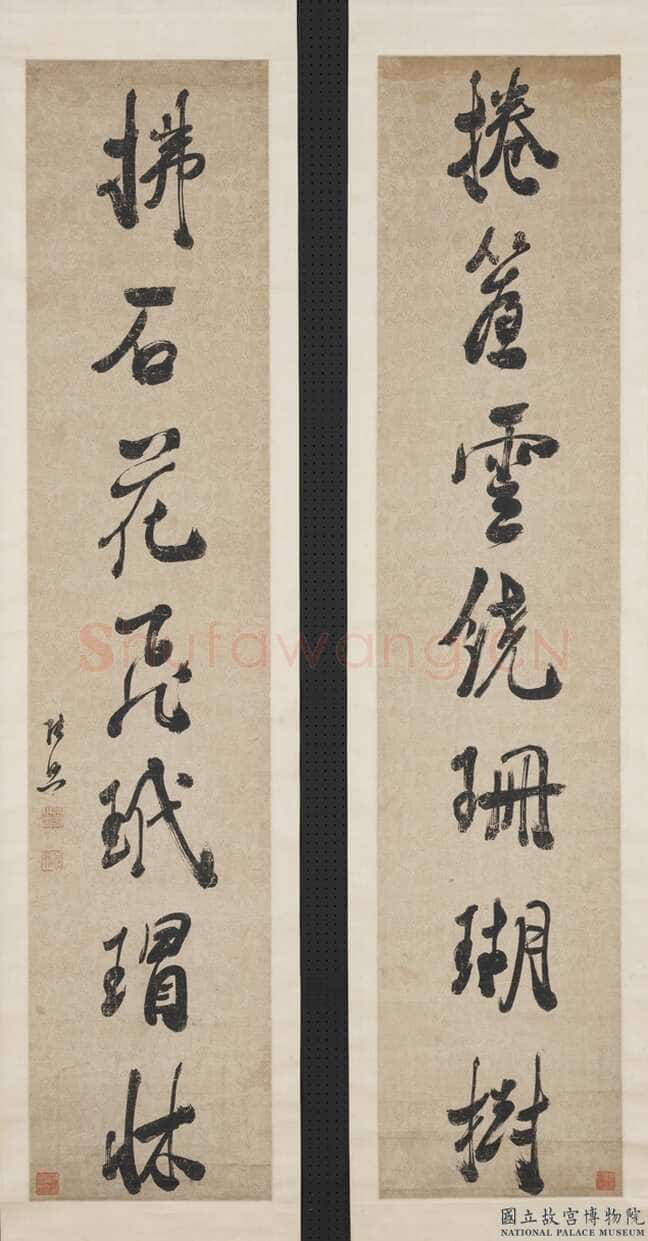 捲簾雲繞珊瑚樹
拂石花飛玳瑁牀
張照
Shufawang.CN
國立故宮博物院
NATIONAL PALACE MUSEUM